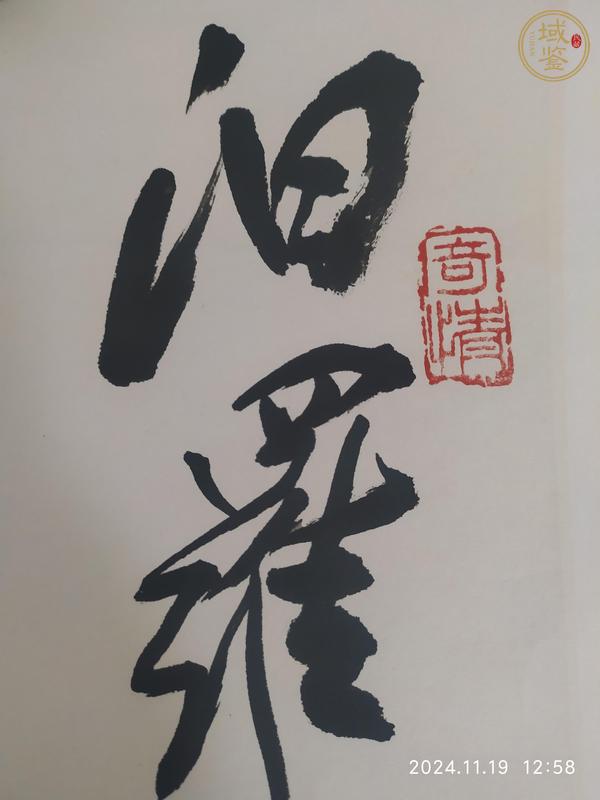 汨羅
寄情
域鉴
2024.11.19 12:58